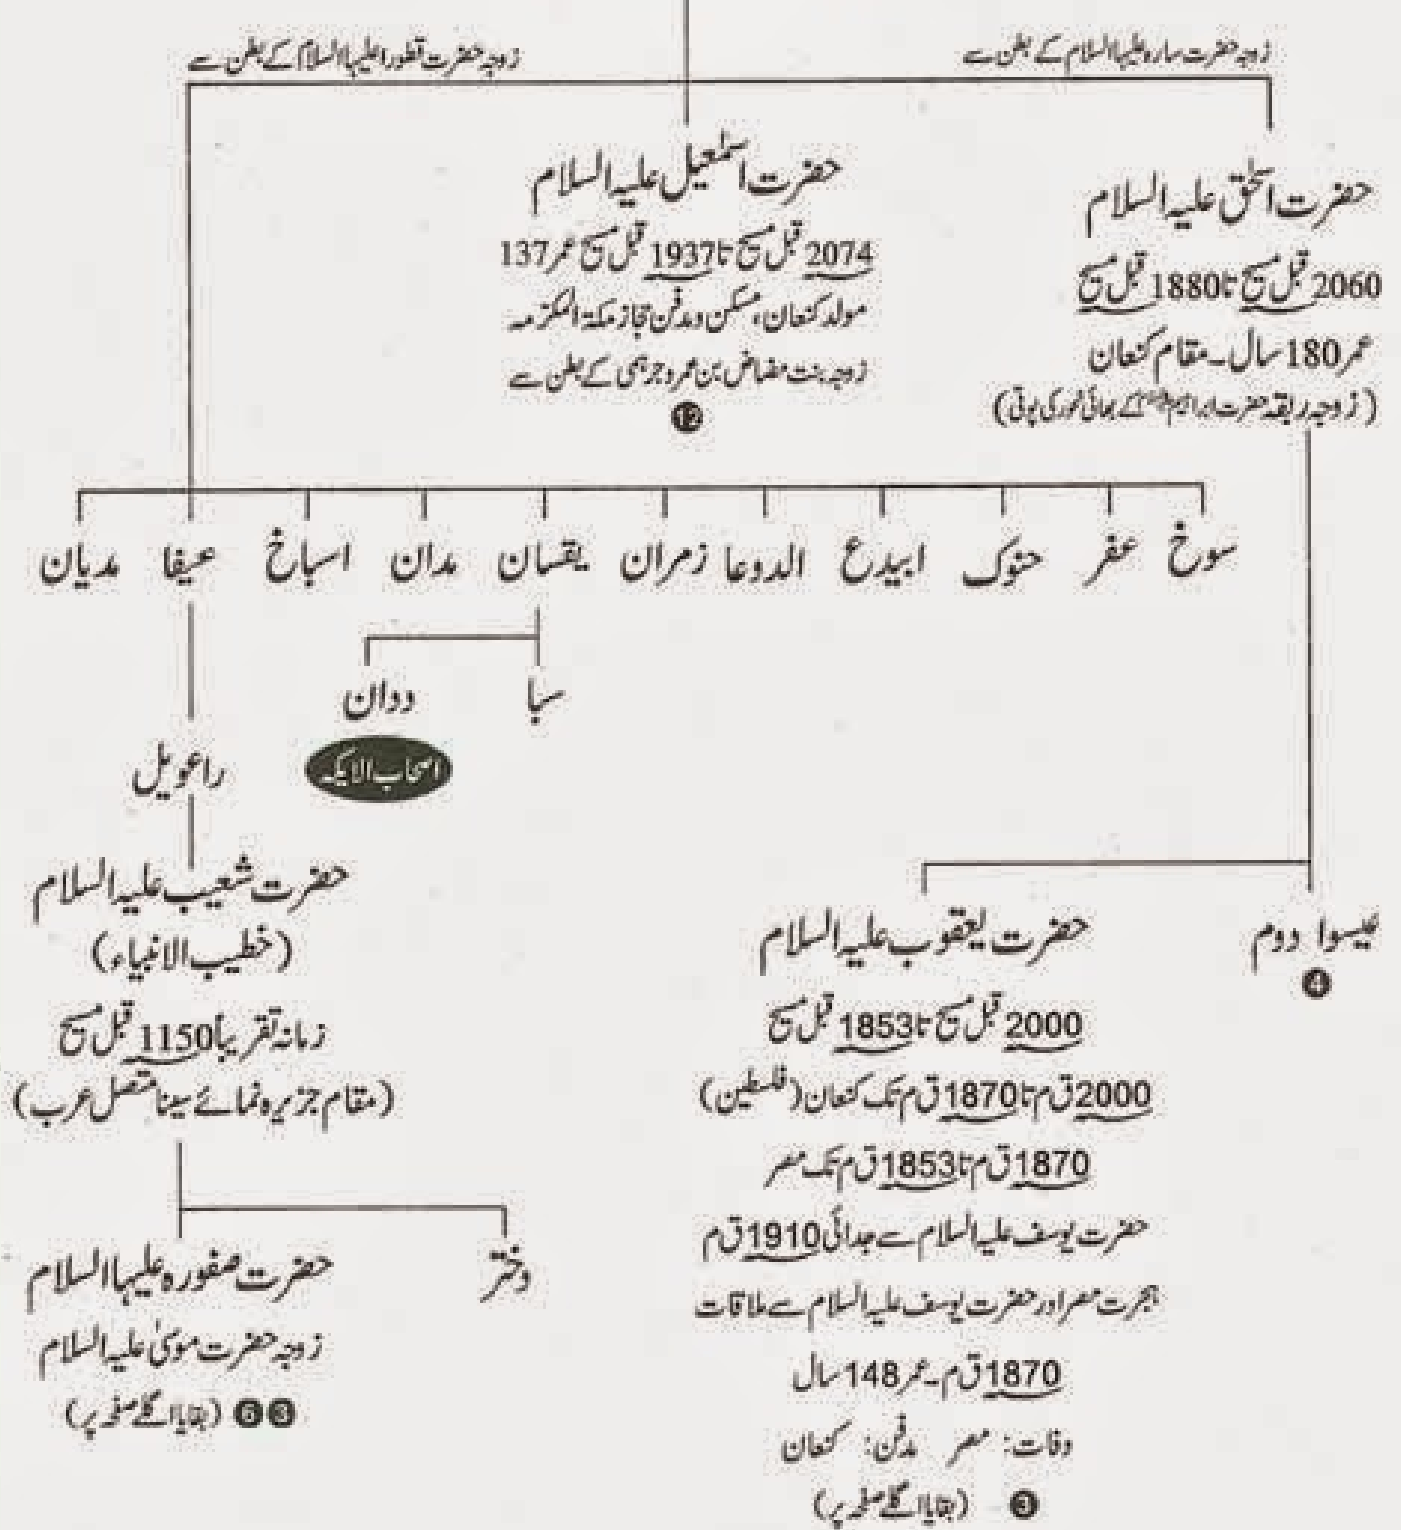 زوجہ حضرت سارہ علیہا السلام کے بطن سے
زوجہ حضرت قطورا علیہا السلام کے بطن سے
حضرت اسحٰق علیہ السلام
2060 قبل مسیح تا 1880 قبل مسیح
عمر 180 سال۔ مقام کنعان
(زوجہ ربقہ حضرت ابراہیم کے بھائی نحور کی پوتی)
حضرت اسمٰعیل علیہ السلام
2074 قبل مسیح تا 1937 قبل مسیح عمر 137
مولد کنعان، مسکن و مدفن حجاز مکۃ المکرمہ
زوجہ بنت مضاض بن عمرو جرہمی کے بطن سے
12
سورخ عفر حنوک ابیدع الدوعا زمران یقسان مدان اسباخ عیفا مدیان
سبا ددان
اصحاب الایکہ
راعویل
حضرت شعیب علیہ السلام
(خطیب الانبیاء)
زمانہ تقریباً 1150 قبل مسیح
(مقام جزیرہ نمائے سینا متصل عرب)
دختر
حضرت صفورہ علیہا السلام
زوجہ حضرت موسیٰ علیہ السلام
(بقایا اگلے صفحہ پر)
عیسوا دوم
4
حضرت یعقوب علیہ السلام
2000 قبل مسیح تا 1853 قبل مسیح
2000 ق م تا 1870 ق م تک کنعان (فلسطین)
1870 ق م تا 1853 ق م تک مصر
حضرت یوسف علیہ السلام سے جدائی 1910 ق م
ہجرت مصر اور حضرت یوسف علیہ السلام سے ملاقات
1870 ق م۔ عمر 148 سال
وفات: مصر مدفن: کنعان
3 (بقایا اگلے صفحہ پر)